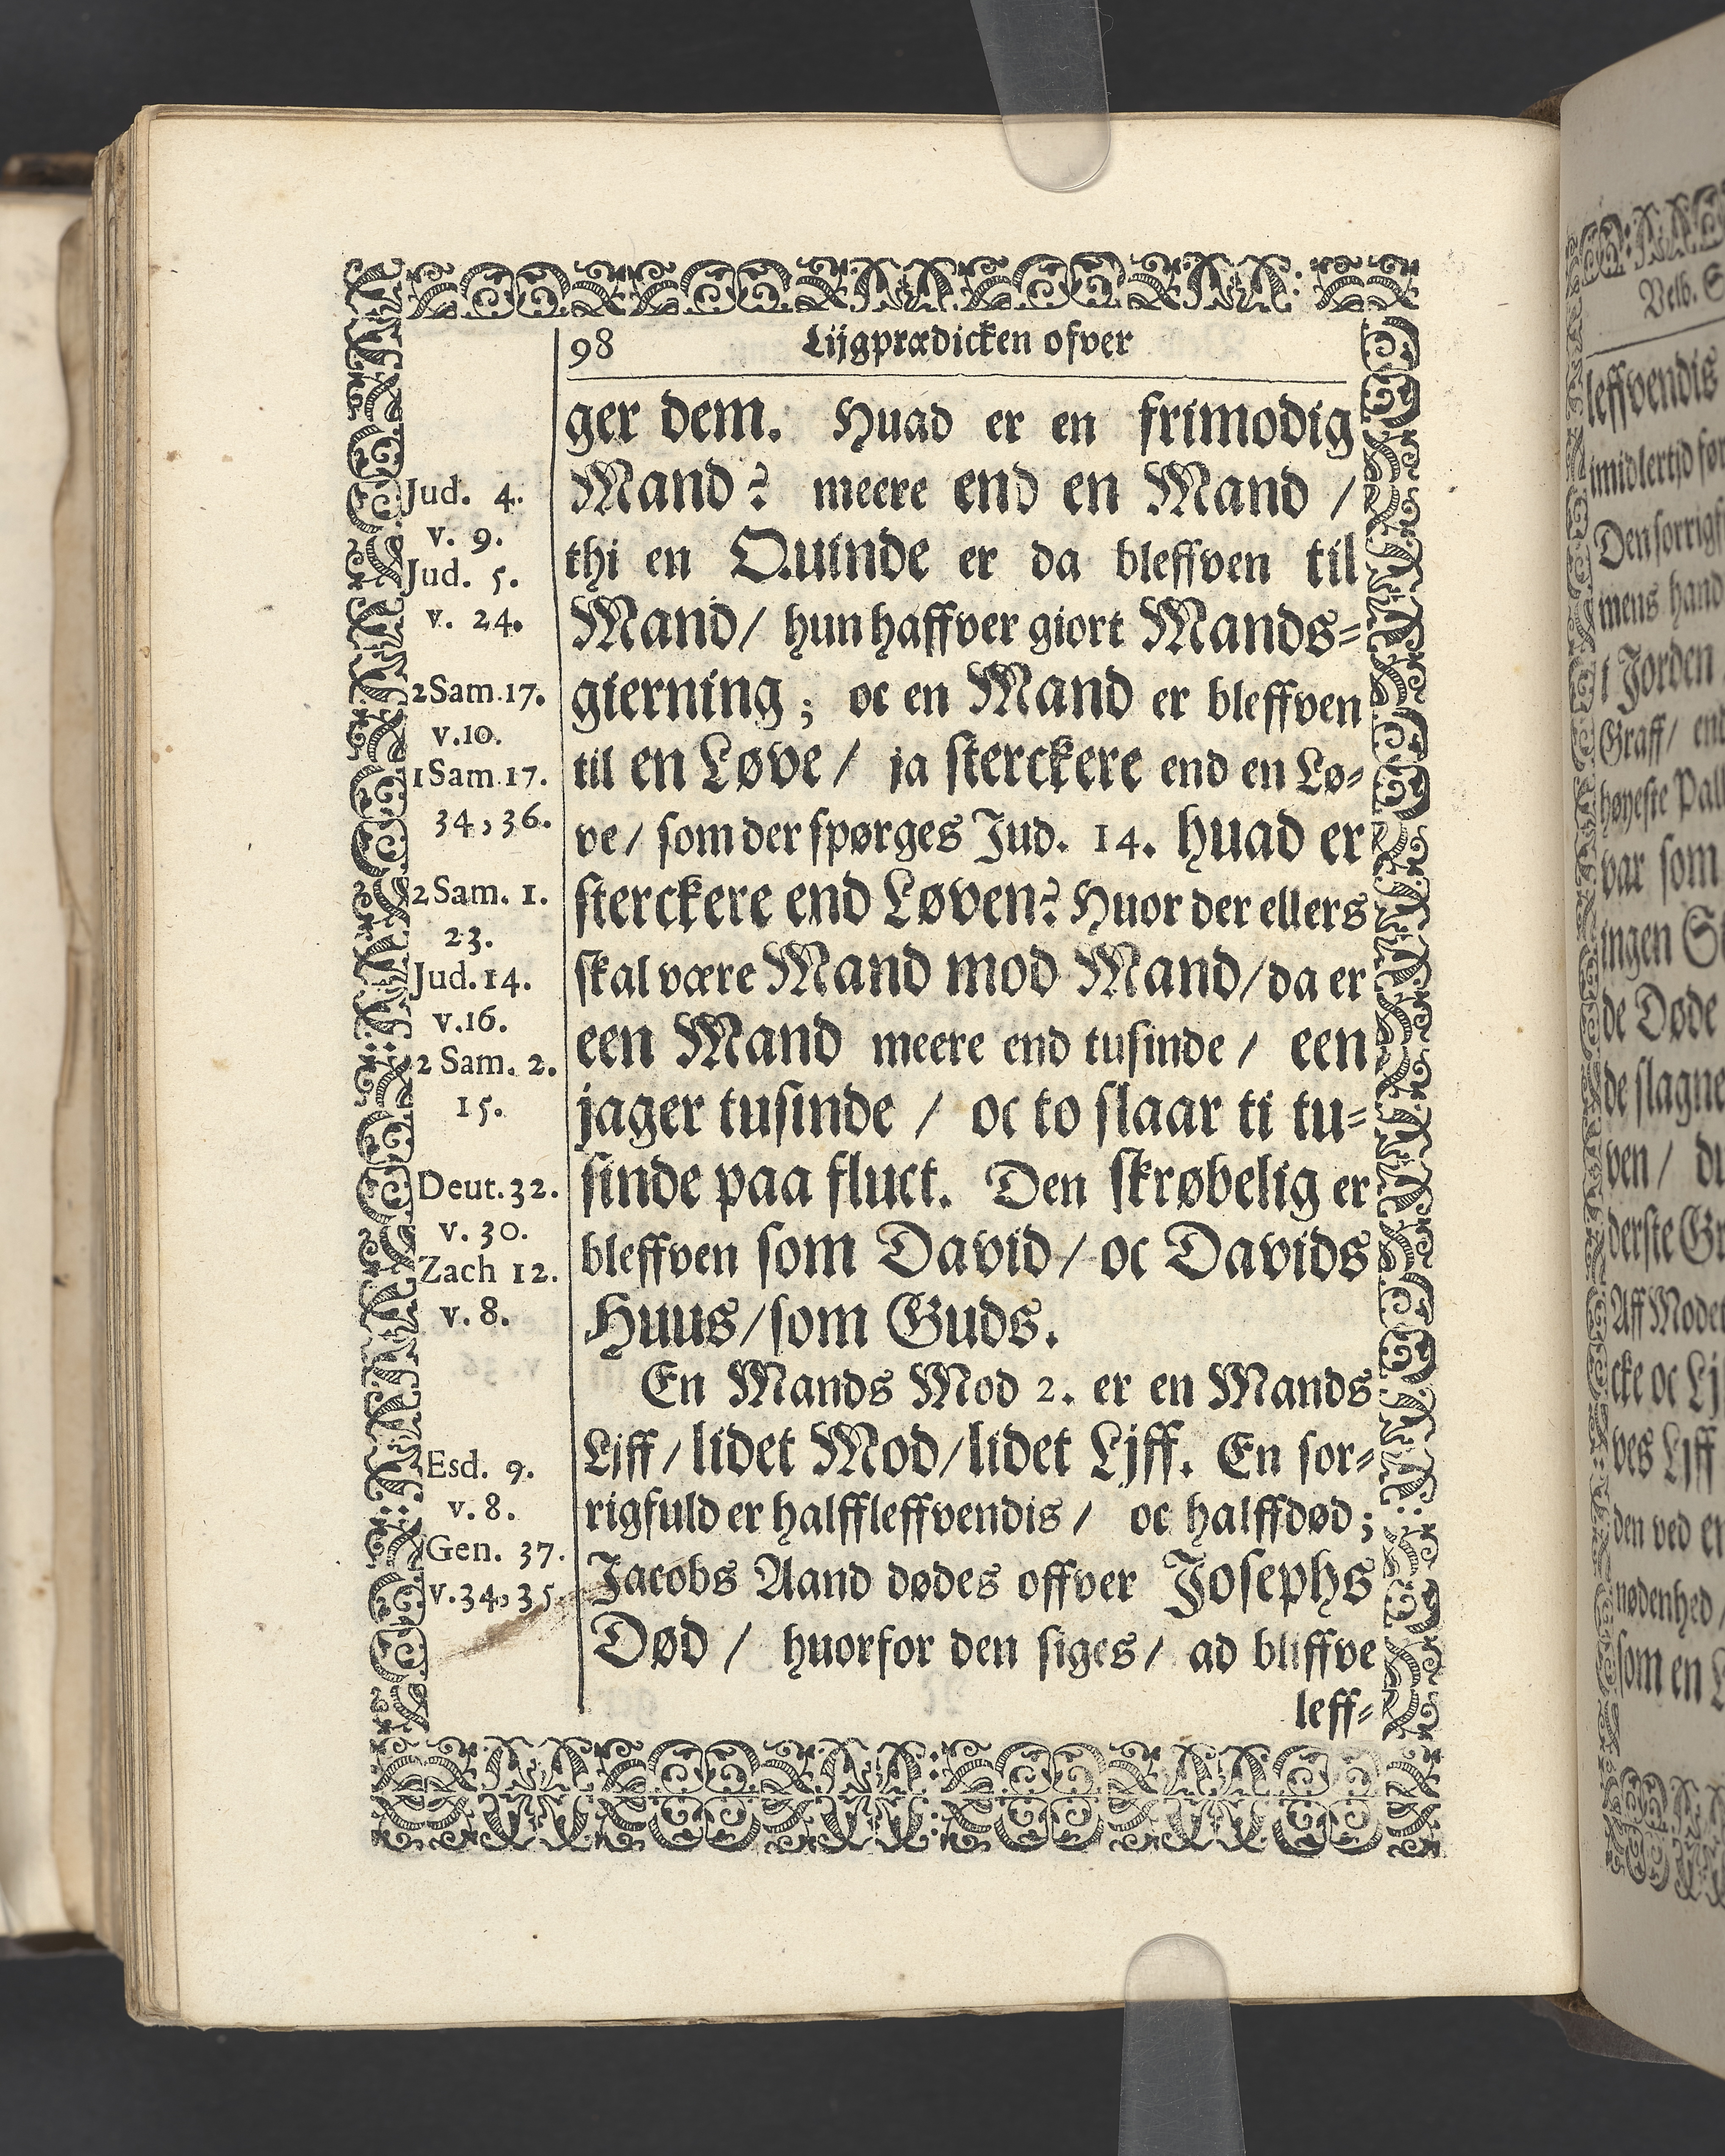 98 Lijgprædicken ofver
ger dem. Huad er en frimodig
Mand? meere end en Mand /
thi en Quinde er da bleffven til
Mand/ hun haffver giort Mands=
gierning; oc en Mand er bleffven
til en Løve / ja sterckere end en Lø=
ve/ som der spørges Jud. 14. huad er
sterckere end Løven? Huor der ellers
skal være Mand mod Mand/ da er
een Mand meere end tusinde / een
jager tusinde / oc to slaar ti tu=
sinde paa fluct. Den skrøbelig er
bleffven som David/ oc Davids
Huus/ som Guds.
En Mands Mod 2. er en Mands
Liff/ lidet Mod/ lidet Ljff. En sor=
rigfuld er halffleffvendis / oc halffdød;
Jacobs Aand dødes offver Josephs
Død / huorfor den siges/ ad bliffve
leff=
Jud. 4.
v. 9.
Jud. 5.
v. 24.
2 Sam. 17.
v. 10.
1 Sam. 17.
34, 36.
2 Sam. 1.
23.
Jud. 14.
v. 16.
2 Sam. 2.
15.
Deut. 32.
v. 30.
Zach 12.
v. 8.
Esd. 9.
v. 8.
Gen. 37.
v. 34, 35.
Velb.
leffvendis
imidlertid før
Den sorrigf
mens hand
i Jorden
Graff/ end
høyeste Pall
var som
ingen
de Døde
de slagne
ven / du
derste
Aff Moder
cke oc
ves Liff
den ved
nødenhed /
som en